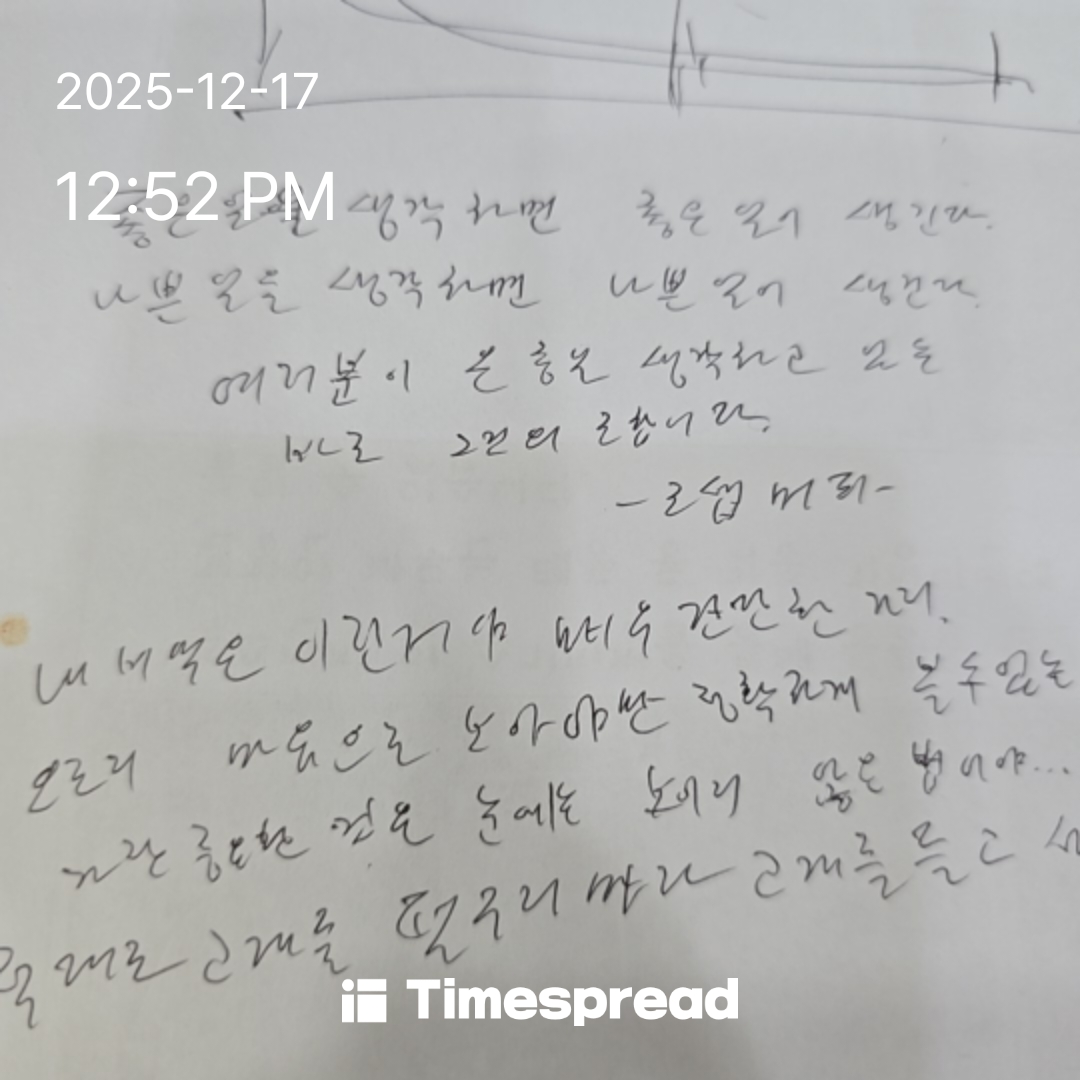 2025-12-17
12:52 PM
좋은 일을 생각하면 좋은 일이 생긴다.
나쁜 일을 생각하면 나쁜 일이 생긴다.
여러분이 온종일 생각하고 있는
바로 그것의
-조셉 머피-
내 비밀은 이런거야 매우 간단한 거지.
오로지 마음으로 보아야만 정확하게 볼 수 있는
가장 중요한 것은 눈에는 보이지 않는 법이야...
절대로 고개를 떨구지 마라 고개를 들고
Timespread